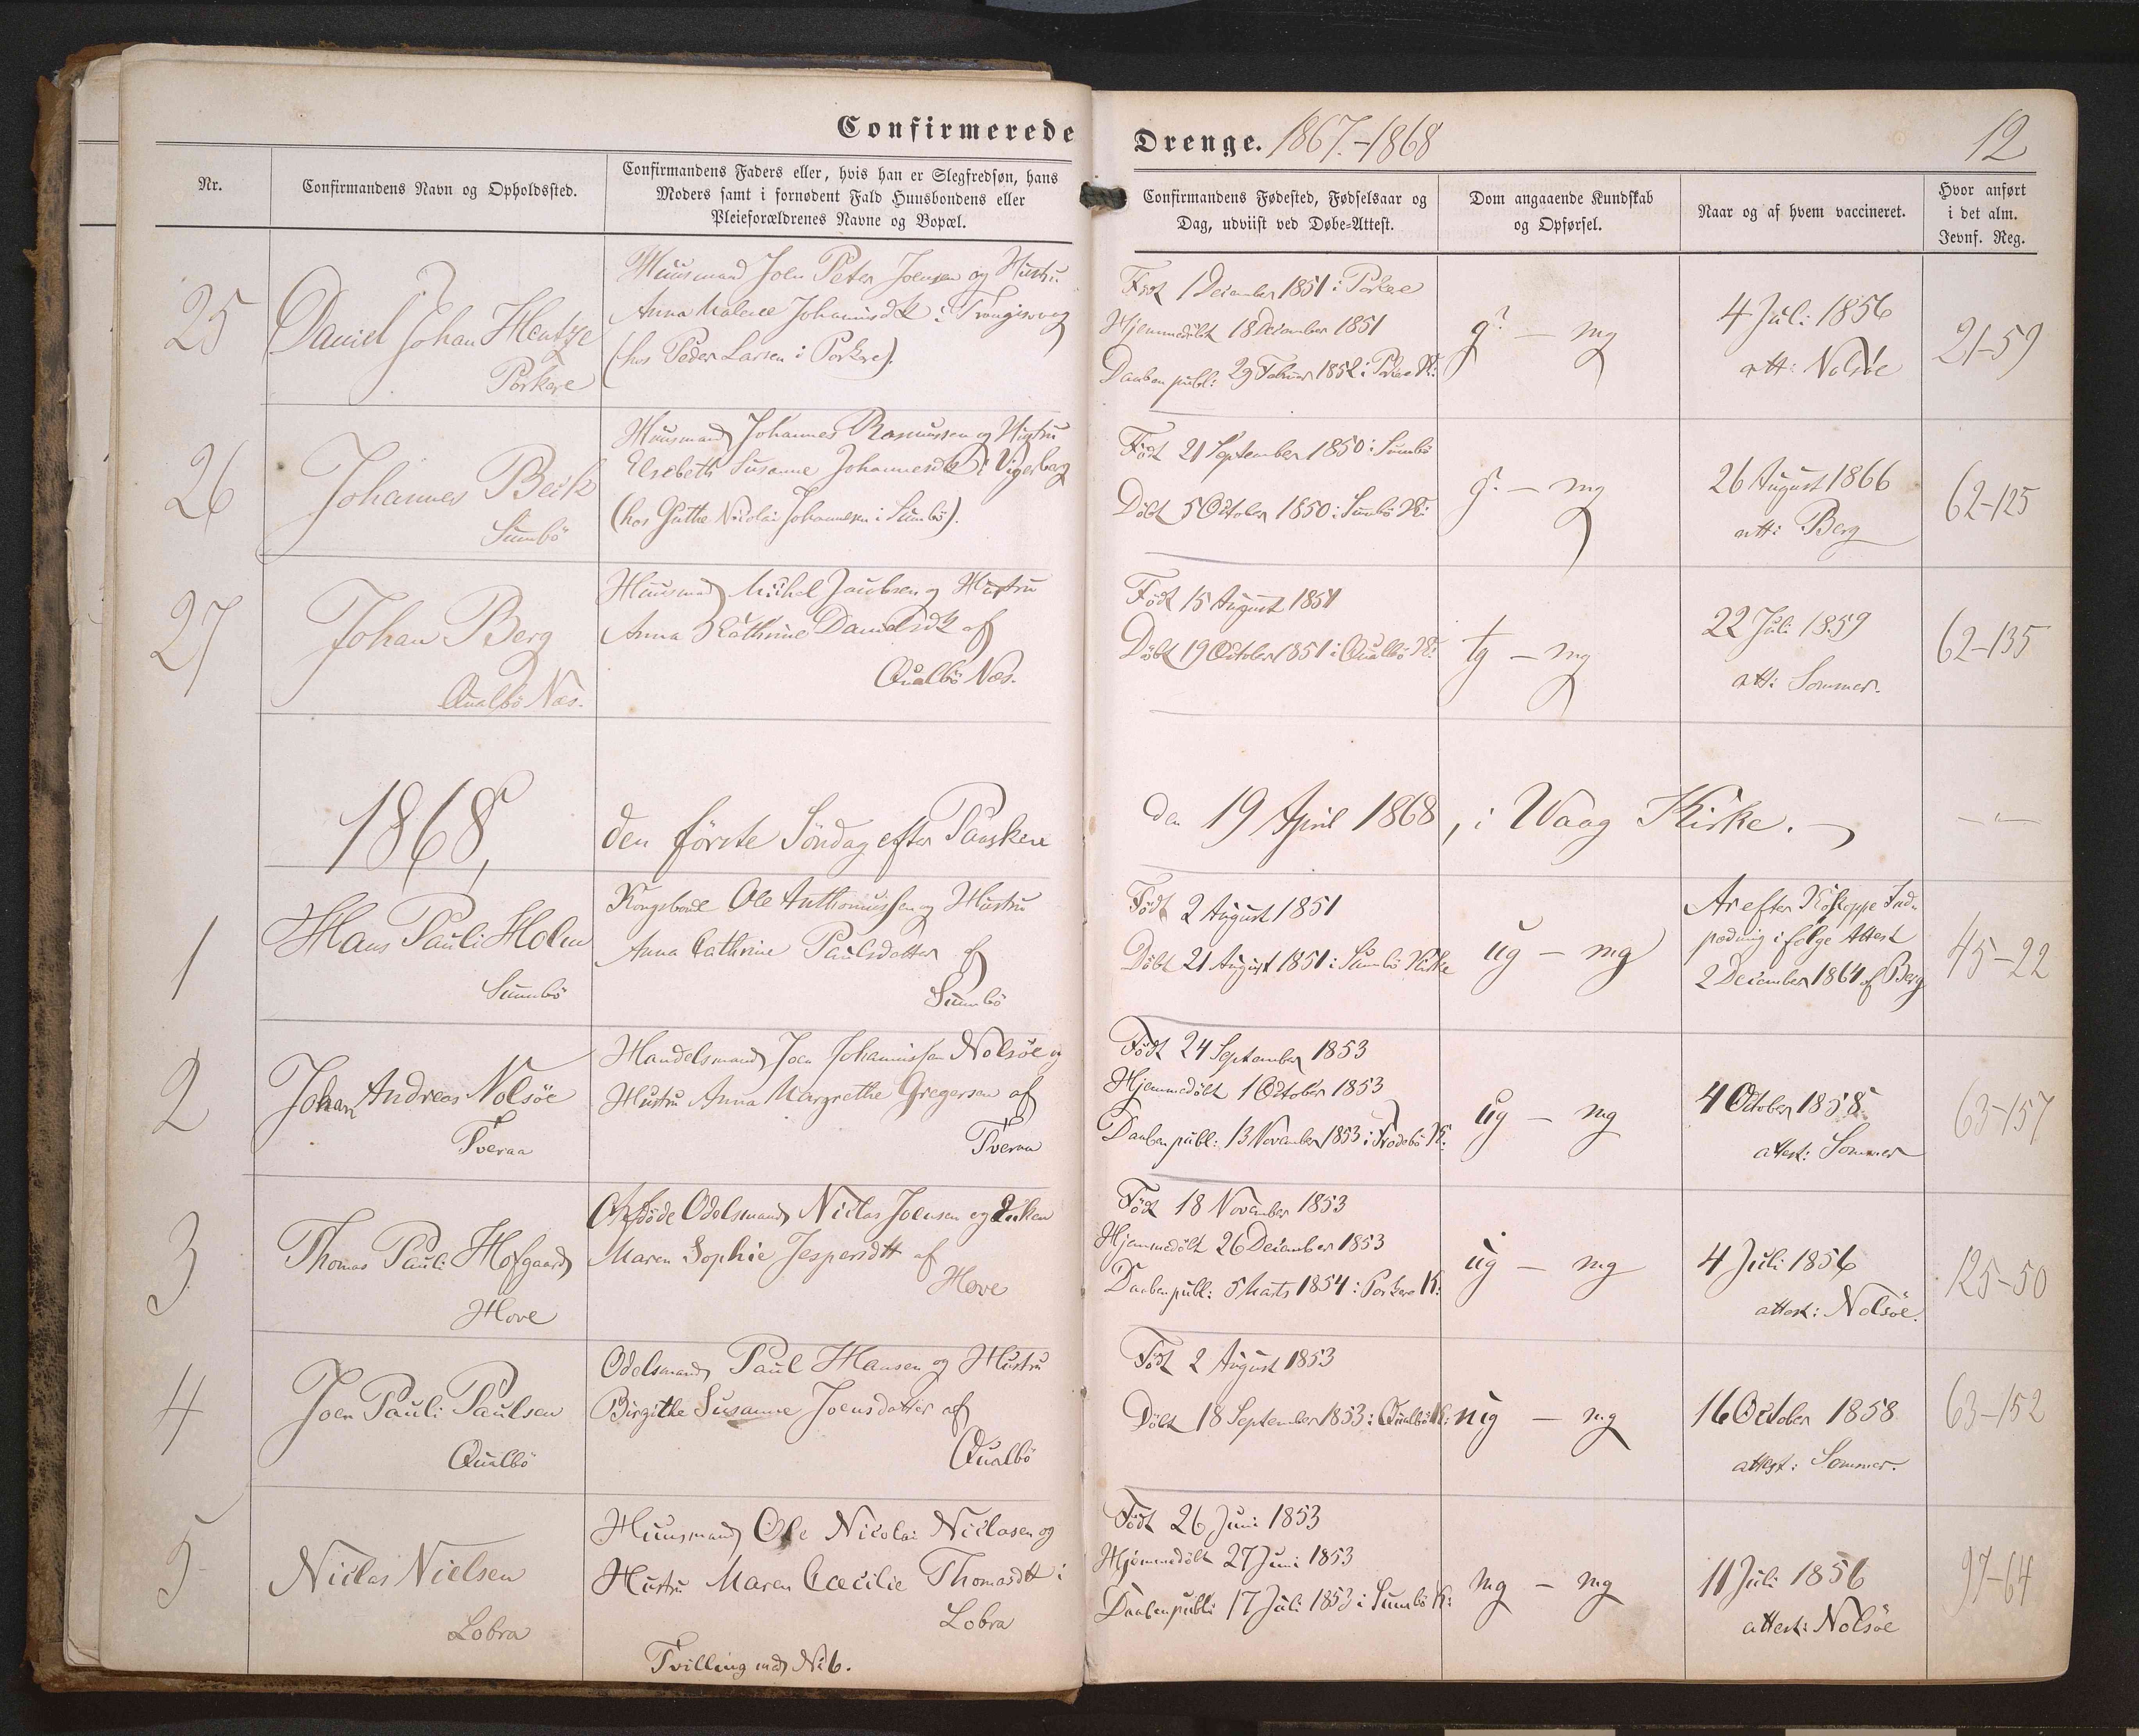 Confirmerede Drenge. 1867.-1868
12
Nr.
Confirmandens Navn og Opholdssted.
Confirmandens Faders eller, hvis han er Slegfredsøn, hans
Moders samt i fornødent Fald Huusbondens eller
Pleieforældrenes Navne og Bopæl.
Confirmandens Fødested, Fødselsaar og
Dag, udviist ved Døbe-Attest.
Dom angaaende Kundskab
og Opførsel.
Naar og af hvem vaccineret.
Hvor anført
i det alm.
Jevnf. Reg.
25
Daniel Johan Hentze
Porkere
Huusmand Joen Peter Joensen og Hustru
Anna Malene Johannisdtt i Trangisvaag
(hos Peder Larsen i Porkere).
Født 1 December 1851 i Porkere
Hjemmedøbt 18 December 1851
Daaben publ: 29 Februar 1852 i Porkere K:
g? - mg
4 Juli 1856
att: Nolsöe
21-59
26
Johannes Beck
Sumbö
Huusmand Johannes Rasmussen og Hustru
Elsebeth Susanne Johannesdtt i
(hos Giethe Nicolai Johannesen i Sumbö).
Født 21 September 1850 i Sumbö
Döbt 5 October 1850 i Sumbö K:
g? - mg
26 August 1866
att: Berg
62-125
27
Johan Berg
Qualbö Næs.
Huusmand Michel Jacobsen og Hustru
Anna Cathrine Danielsdtt af
Qualbö Næs.
Födt 15 August 1851
Döbt 19 October 1851 i Qualbö K:
tg - mg
22 Juli 1859
att: Sommer.
62-135
1868,
den förste Söndag efter Paaske
den 19 April 1868, i Waag Kirke.
1
Hans Pauli Holm
Sumbö
Kongsbonde Ole Anthoniussen og Hustru
Anna Cathrine Paulsdatter af
Sumbö
Födt 2 August 1851
Döbt 21 August 1851 i Sumbö Kirke
ug - mg
Ar efter Kokoppe Ind-
podning i følge Attest
2 December 1864 af Berg
45-22
2
Johan Andreas Nolsöe
Tveraa
Handelsmand Joen Johannissen Nolsöe og
Hustru Anna Margrethe Gregersen af
Tveraa
Födt 24 September 1853
Hjemmedöbt 1 October 1853
Daaben publ: 13 November 1853 i Frodebö K:
ug - mg
4 October 1858
attest: Sommer
63-157
3
Thomas Pauli Hofgaard
Hove
Afdøde Odelsmand Niclas Joensen og Enken
Maren Sophie Jespersdtt af
Hove
Födt 18 November 1853
Hjemmedöbt 26 December 1853
Daaben publ: 5 Marts 1854 i Porkere K:
ug - mg
4 Juli 1856
attest: Nolsöe.
125-50
4
Joen Pauli Paulsen
Qualbö
Odelsmand Paul Hansen og Hustru
Birgithe Susanne Joensdatter af
Qualbö
Födt 2 August 1853
Döbt 18 September 1853 i Qualbö K:
mg - mg
16 October 1858
attest: Sommer.
63-152
5
Niclas Nielsen
Lobra
Huusmand Ole Nicolai Niclasen og
Hustru Maren Cæcilie Thomasdtt i
Lobra
Tvilling med N: 6.
Födt 26 Juni 1853
Hjemmedöbt 27 Juni 1853
Daaben publ: 17 Juli 1853 i Sumbö K:
mg - mg
11 Juli 1856
attest: Nolsöe
97-64